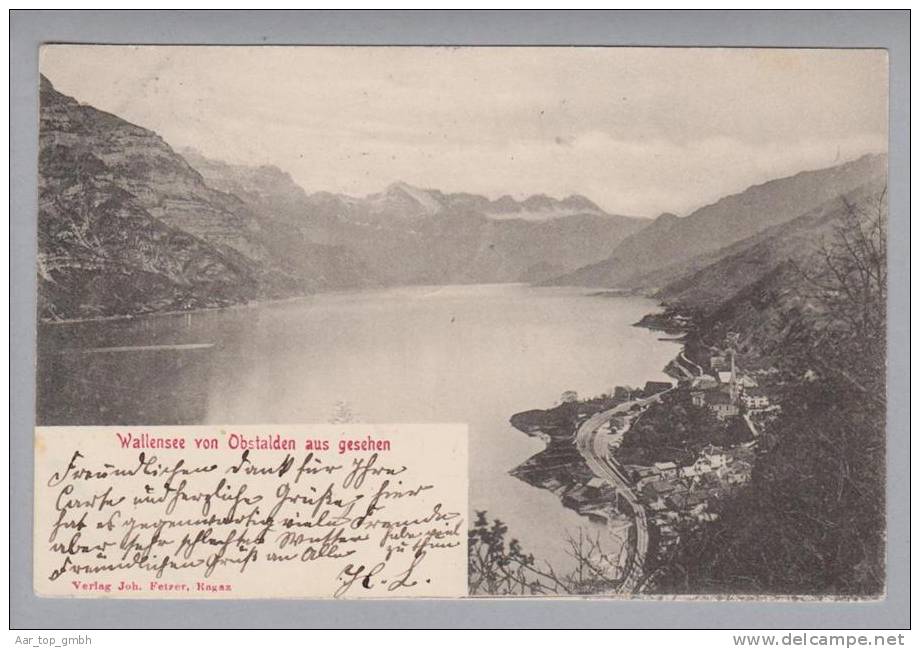 Wallensee von Obstalden aus gesehen
Freündlichen Dank für Ihre
Carte ünd herzliche Grüße, hier
hat es gegenwärtig viele Fremde
aber sehr schlechtes Wetter habe viel
zu thun
Freündlichen Grüß an Alle
L.
Verlag Joh. Fetzer, Ragaz
Aar_top_gmbh
www.delcampe.net